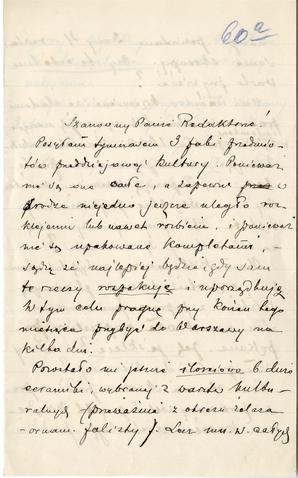 60a
Szanowny Panie Redaktorze!
Posyłam tymczasem 9 fasz przedmio-
tów przeddziejowej kultury. Ponieważ
nie są one całe, a zapewne prze w
drodze niejedno jeszcze uległo roz-
klejeniu lub nawet rozbiciu, i ponieważ
nie są upakowane kompletami, -
sądzę że najlepiej będzie, gdy sam
te rzeczy rozpakuję i uporządkuję
W tym celu pragnę przy końcu tego
miesiąca przybyć do Warszawy na
kilka dni.
Pozostało mi jeszcze ilościowo b. dużo
ceramiki, wybranej z warstw kultu-
ralnych (przeważnie z okresu żelaza
-ornam. falisty) Lecz w całych